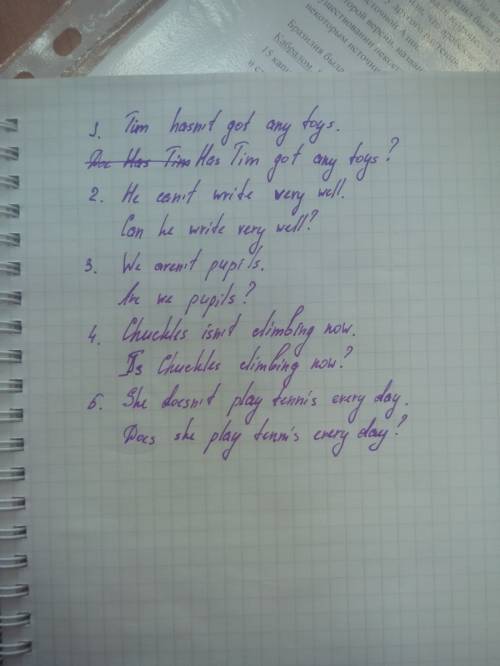 Бразилия была
Кабралом.
15 кап
1. Tim hasn't got any toys.
Doe Has Tim Has Tim got any toys?
2. He can't write very well.
Can he write very well?
3. We aren't pupils.
Are we pupils?
4. Chuckles isn't climbing now.
Is Chuckles climbing now?
5. She doesn't play tennis every day.
Does she play tennis every day?